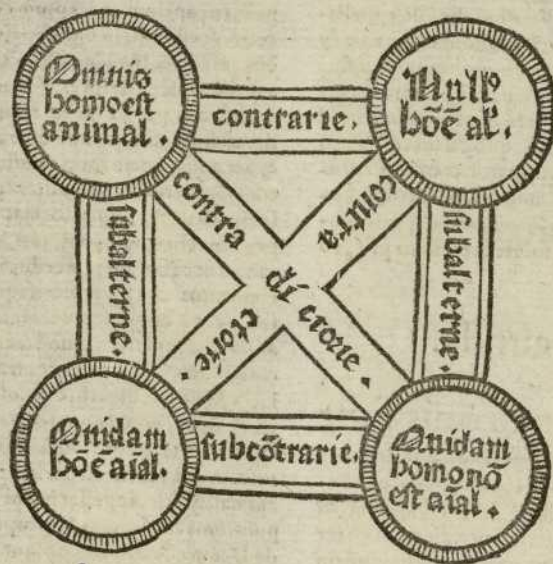 Omnis
homo est
animal.
contrarie.
Null⁹
hō ē al̄.
subalterne.
contra
contra
di
ctorie.
ctorie.
subalterne.
Quidam
hō ē aīal.
subcōtrarie.
Quidam
homo nō
est aīal.